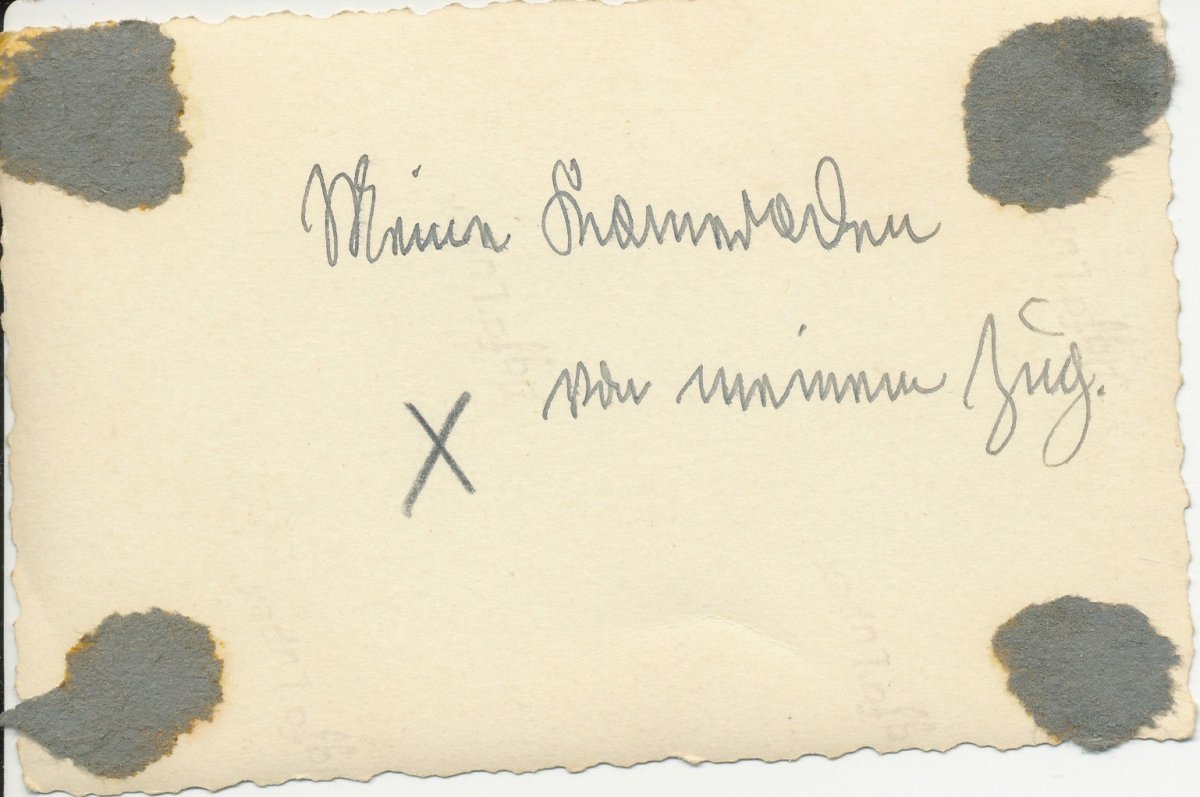 Meine Kameraden
von meinem Zug.
X